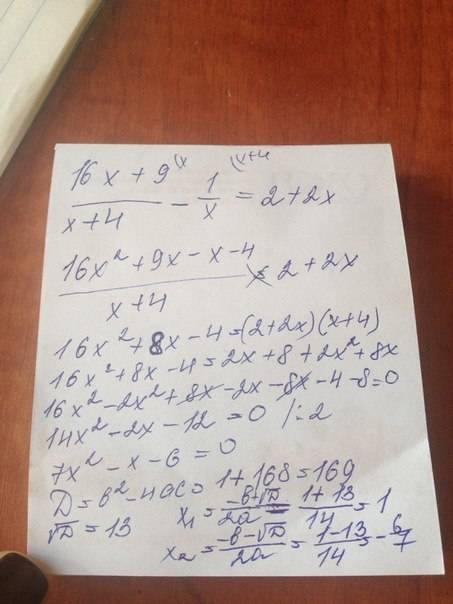 (16x + 9)/(x+4) (x − 1/x (x+4 = 2 + 2x
(16x² + 9x − x − 4)/(x+4) = 2 + 2x
16x² + 8x − 4 = (2 + 2x)(x+4)
16x² + 8x − 4 = 2x + 8 + 2x² + 8x
16x² − 2x² + 8x − 2x − 8x − 4 − 8 = 0
14x² − 2x − 12 = 0 /:2
7x² − x − 6 = 0
D = b² − 4ac = 1 + 168 = 169
√D = 13 x₁ = (−b+√D)/2a = (1+13)/14 = 1
x₂ = (−b−√D)/2a = (1−13)/14 = −6/7